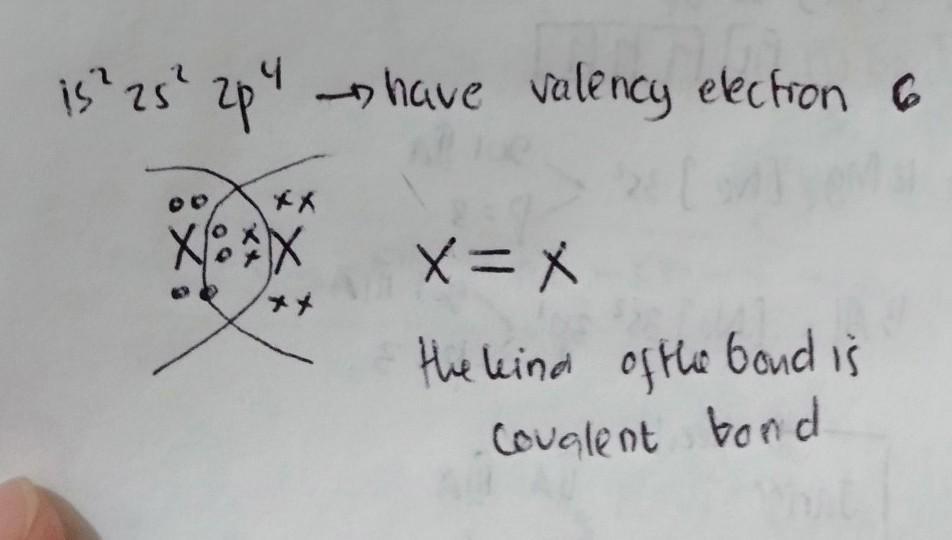 is² 2s² 2p⁴ → have valency electron 6
oo xx
X o x X
o x
oo xx
X = X
the kind of the bond is
covalent bond